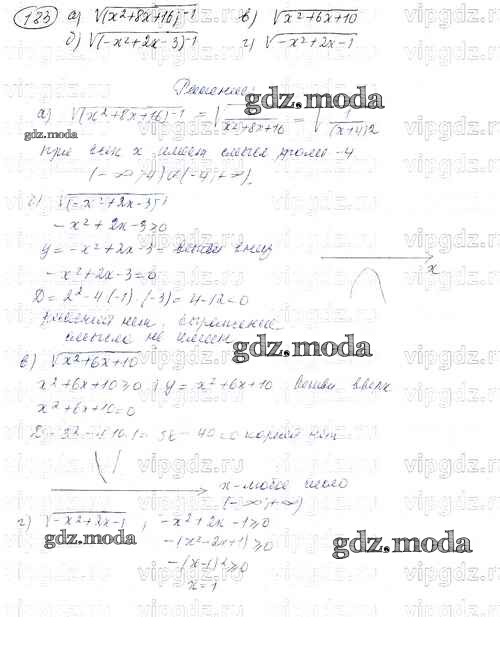 183 а) √(x²+8x+16)⁻¹ в) √x²+6x+10
б) √(-x²+2x-3)⁻¹ г) √-x²+2x-1
Решение:
gdz.moda
а) √(x²+8x+16)⁻¹ = √1/x²+8x+16 = √1/(x+4)²
gdz.moda
при всех x имеет смысл кроме -4
(-∞;-4)∪(-4;+∞).
б) √(-x²+2x-3)⁻¹
-x²+2x-3≥0
y = -x²+2x-3 = ветви вниз
-x²+2x-3=0
x
D = 2²-4(-1)·(-3) = 4-12<0
решений нет, выражение
смысла не имеет
gdz.moda
в) √x²+6x+10
x²+6x+10≥0; y = x²+6x+10 ветви вверх
x²+6x+10=0
36-40<0 корней нет
x-любое число
(-∞;+∞)
г) √-x²+2x-1; -x²+2x-1≥0
gdz.moda
-(x²-2x+1)≥0
gdz.moda
-(x-1)²≥0
x=1